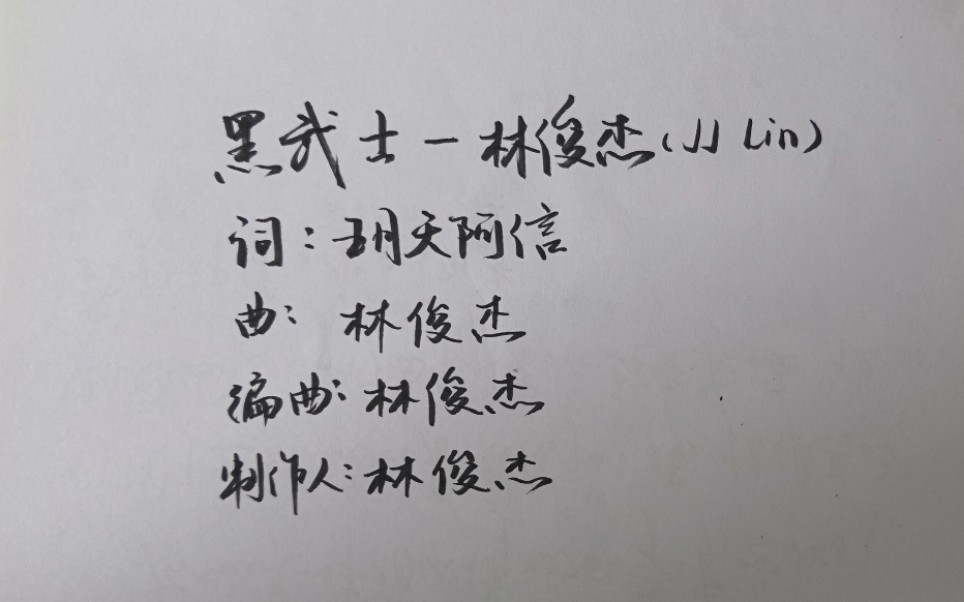 黑武士-林俊杰(JJ Lin)
词:五月天阿信
曲:林俊杰
编曲:林俊杰
制作人:林俊杰